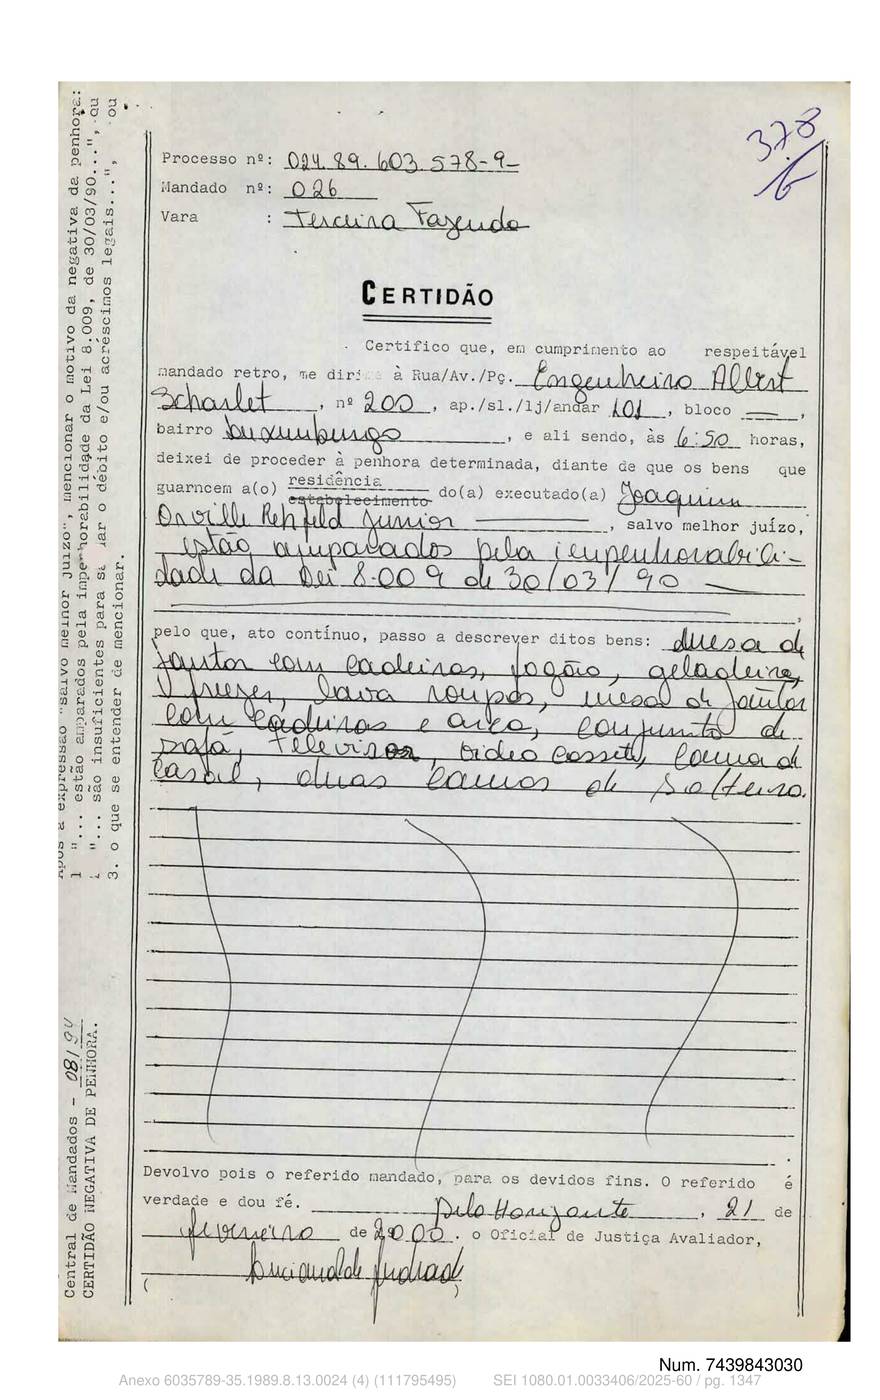 378
Processo nº: 024.89.603.578-9
Mandado nº: 026
Vara : Terceira Fazenda
CERTIDÃO
Certifico que, em cumprimento ao respeitável
mandado retro, me diri à Rua/Av./Pç. Engenheiro Albert
Scharlet, nº 200, ap./sl./lj/andar 101, bloco —,
bairro Luxemburgo, e ali sendo, às 6:50 horas,
deixei de proceder à penhora determinada, diante de que os bens que
guarncem a(o) residência
estabelecimento do(a) executado(a) Joaquim
Orville Rehfeld Junior, salvo melhor juízo,
estão amparados pela impenhorabili-
dade da Lei 8.009 de 30/03/90
pelo que, ato contínuo, passo a descrever ditos bens: mesa de
jantar com cadeiras, fogão, geladeira,
freezer, lava roupas, mesa de jantar
com cadeiras e arca, conjunto de
sofá, televisor, video cassete, cama de
casal, duas camas de solteiro.
Devolvo pois o referido mandado, para os devidos fins. O referido é
verdade e dou fé. Belo Horizonte, 21 de
fevereiro de 2000. o Oficial de Justiça Avaliador,
( )
Após a expressão "salvo melhor juízo", mencionar o motivo da negativa da penhora:
1 "... estão amparados pela impenhorabilidade da Lei 8.009, de 30/03/90...", ou
"... são insuficientes para sa ar o débito e/ou acréscimos legais...", ou
3. o que se entender de mencionar.
Central de Mandados - 08/94
CERTIDÃO NEGATIVA DE PENHORA.
Num. 7439843030
Anexo 6035789-35.1989.8.13.0024 (4) (111795495) SEI 1080.01.0033406/2025-60 / pg. 1347